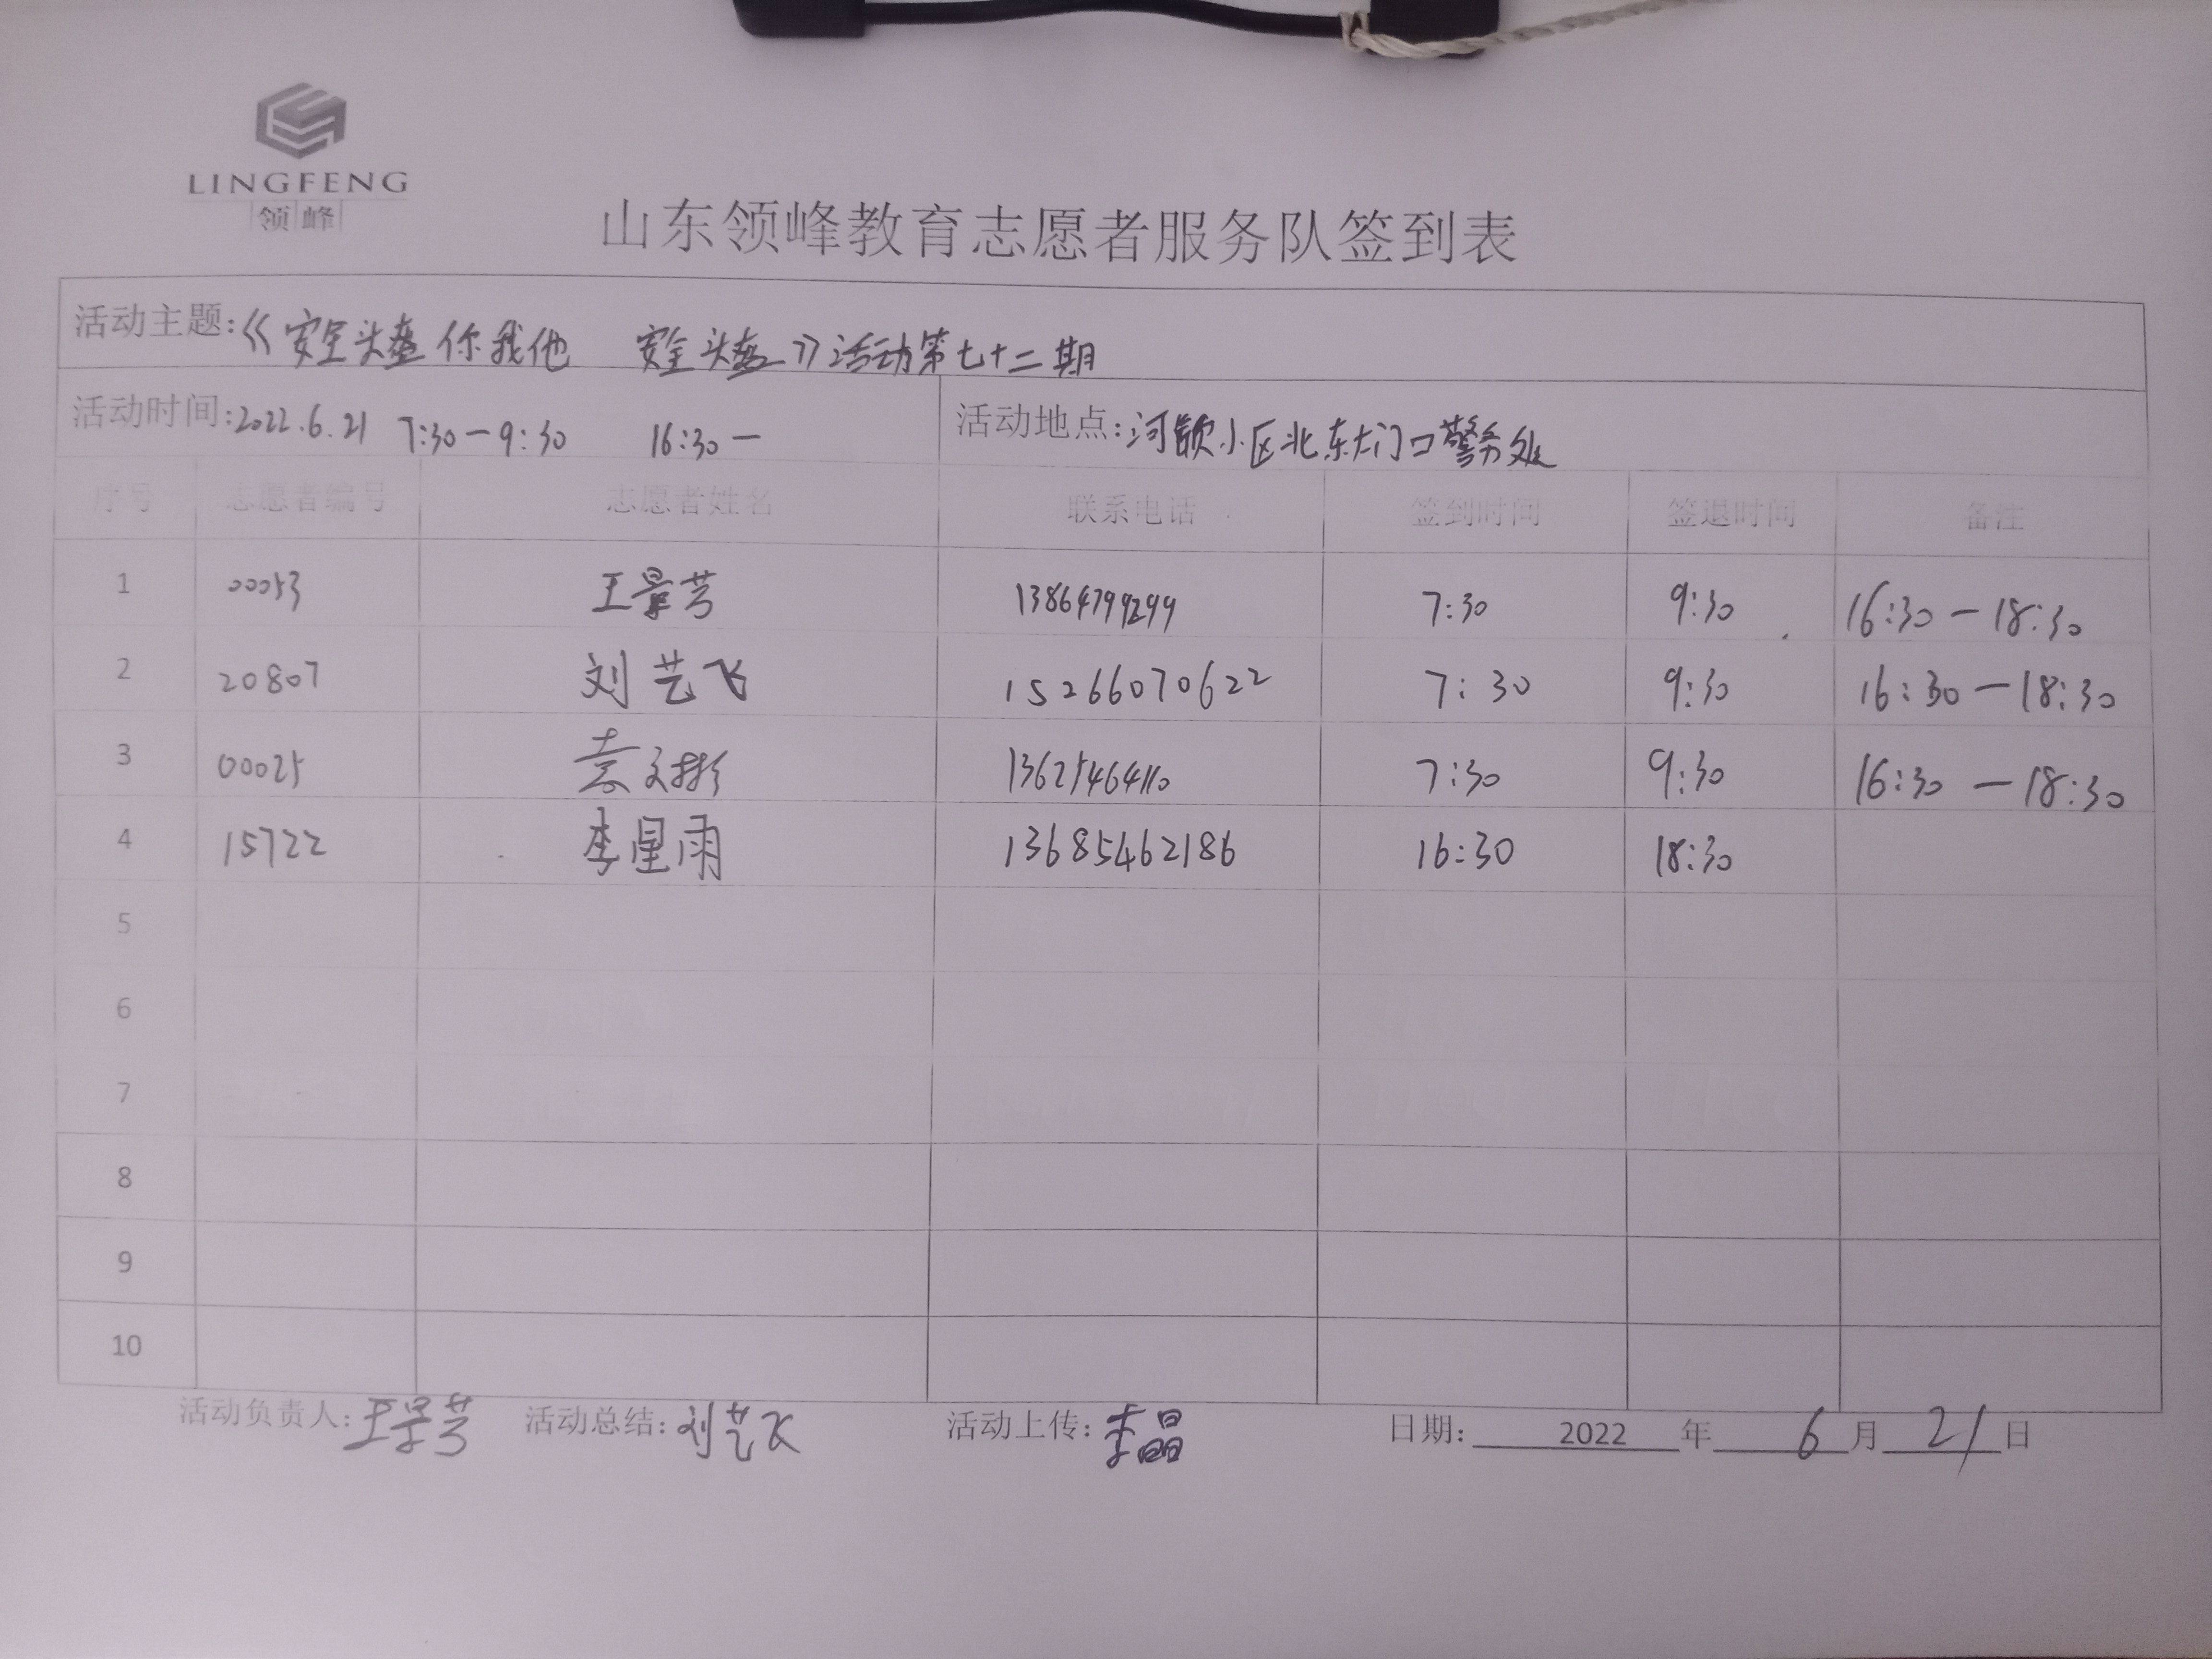 LINGFENG
领峰
山东领峰教育志愿者服务队签到表
活动主题:《安全头盔你我他 安全头盔》活动第七十二期
活动时间:2022.6.21 7:30一9:30 16:30一 活动地点:河颐小区北东大门口警务处
序号 志愿者编号 志愿者姓名 联系电话 签到时间 签退时间 备注
1 00053 王景芳 13864799299 7:30 9:30 16:30一18:30
2 20807 刘艺飞 15266070622 7:30 9:30 16:30一18:30
3 00025 袁文彬 13625464110 7:30 9:30 16:30一18:30
4 15722 李星雨 13685462186 16:30 18:30
5
6
7
8
9
10
活动负责人:王景芳 活动总结:刘艺飞 活动上传:李晶 日期: 2022 年 6 月 21 日